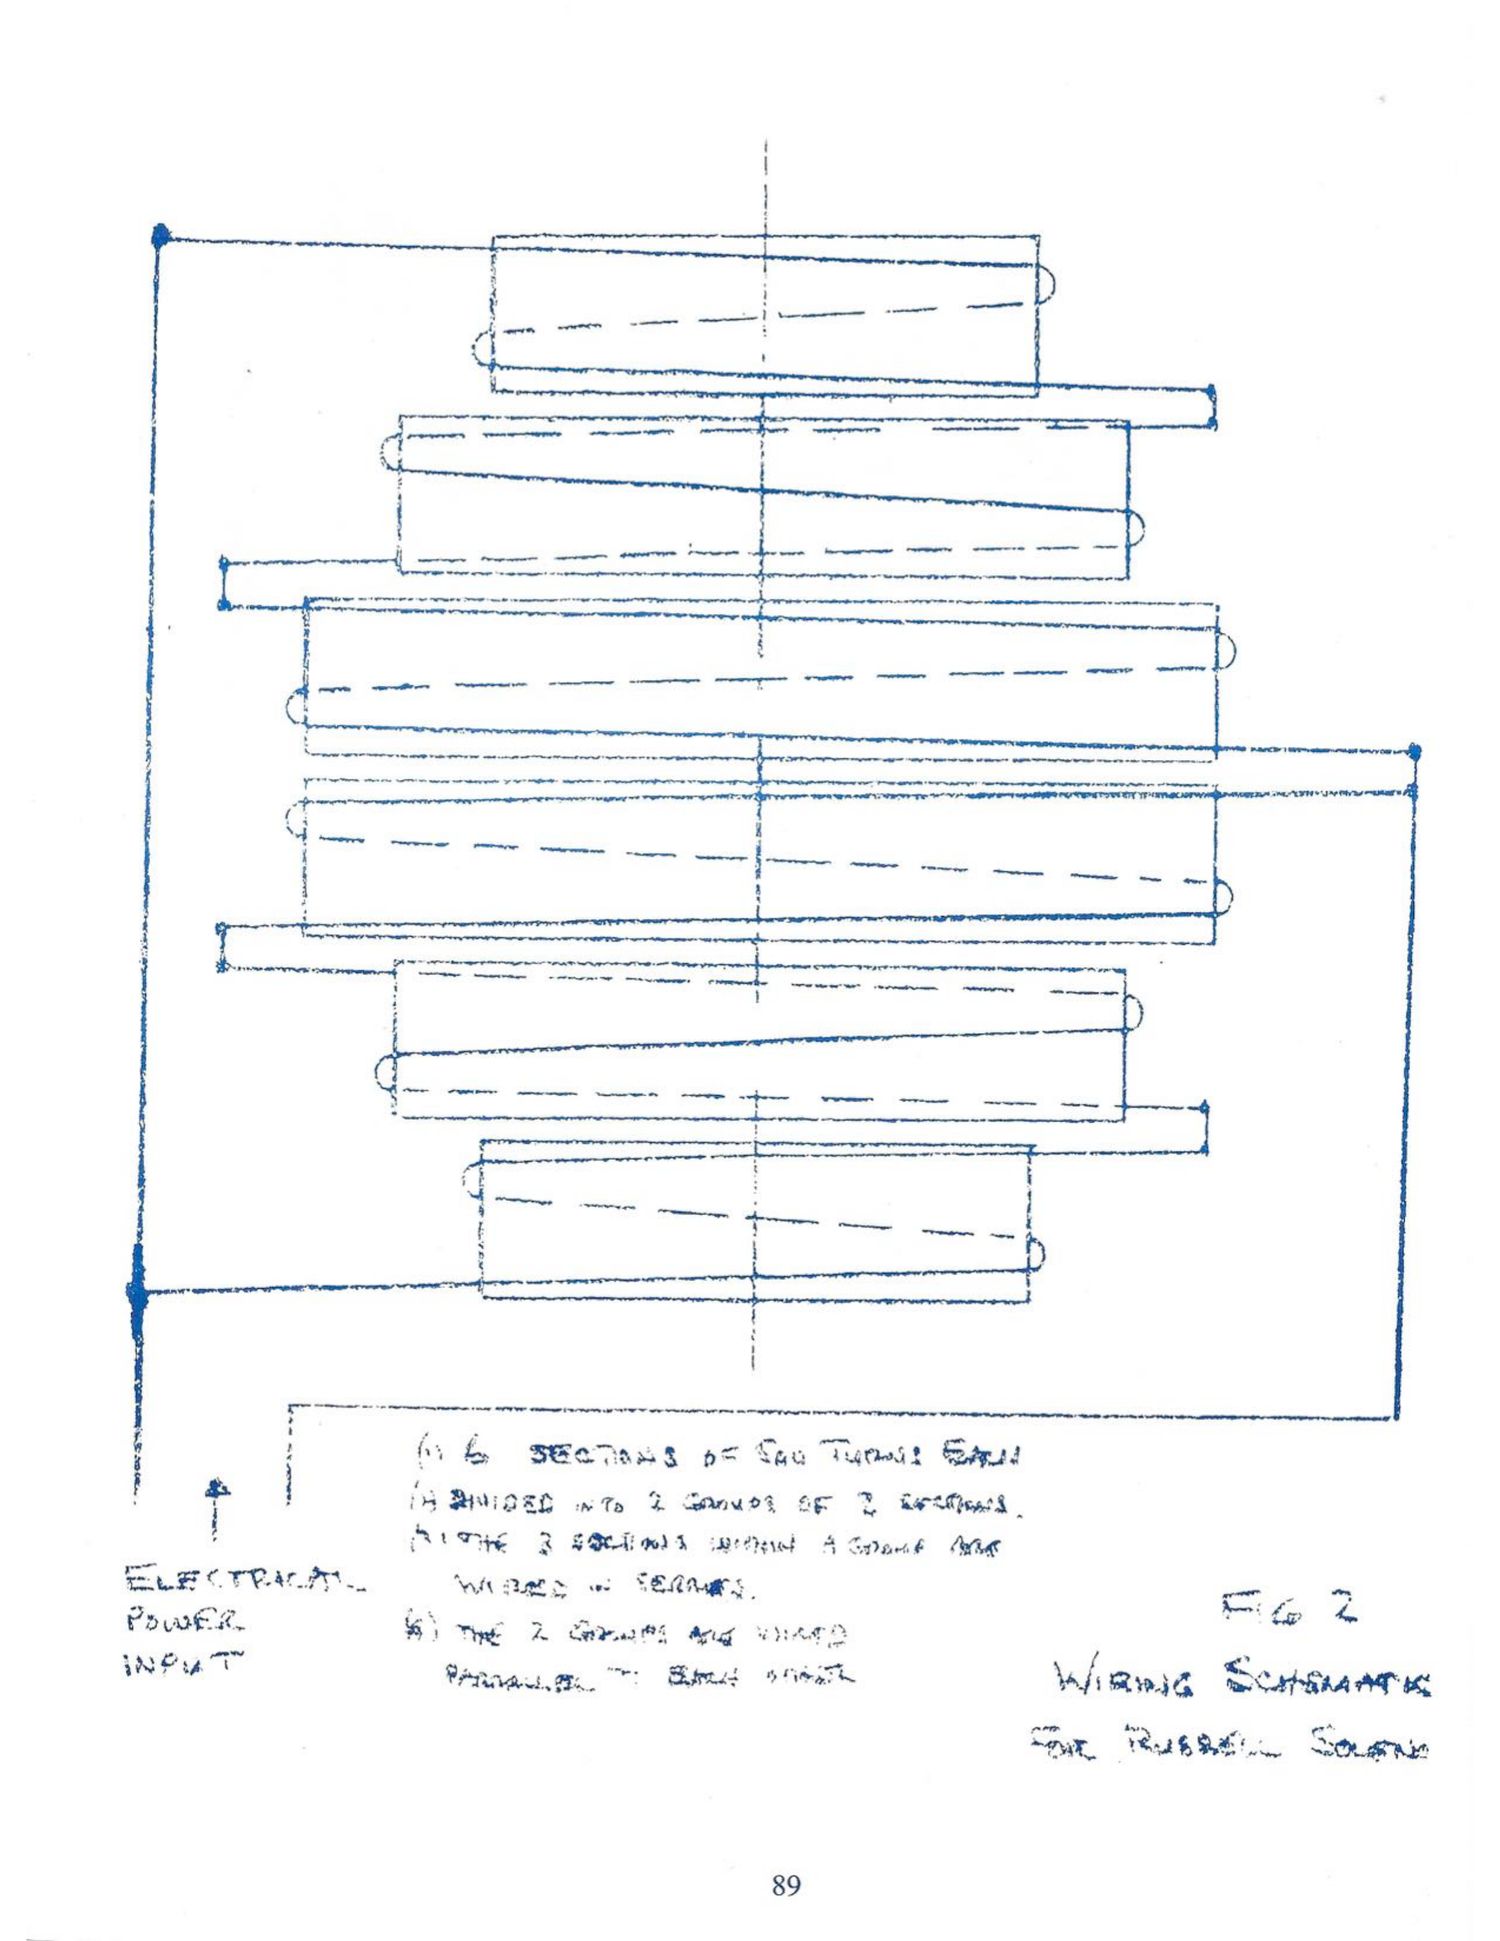 (1) 6 SECTIONS OF TURNS EACH
DIVIDED INTO 2 GROUPS OF 3 SECTIONS.
THE 3 SECTIONS WITHIN A GROUP ARE
WIRED IN SERIES.
THE 2 GROUPS ARE WIRED
PARALLEL TO EACH OTHER
ELECTRICAL
POWER
INPUT
FIG 2
WIRING SCHEMATIC
FOR RUSSELL
89